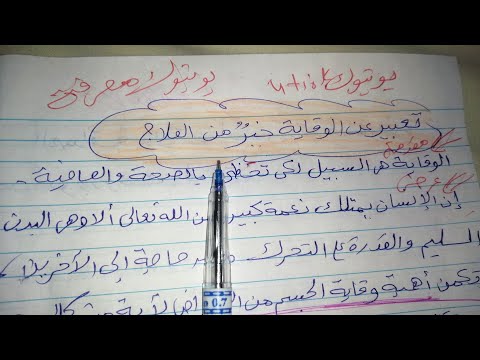 يوتيوك utiok يوتيوك معرفي
تعبير عن الوقاية خيرٌ من العلاج
مقدمة
الوقاية هي السبيل لكي تحظى بالصحة والعافية.
عرض
إن الإنسان يمتلك نعمة كبيرة من الله تعالى ألا وهي البدن
السليم والقدرة ع التحرك حاجة إلى الآخرين،
تكمن أهمية وقاية الجسم من
0.7